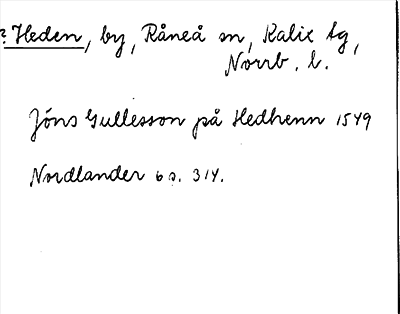 ? Heden, by, Råneå sn, Kalix tg,
Norrb. l.
Jöns Gullesson på Hedhenn 1549
Nordlander 6 s. 314.